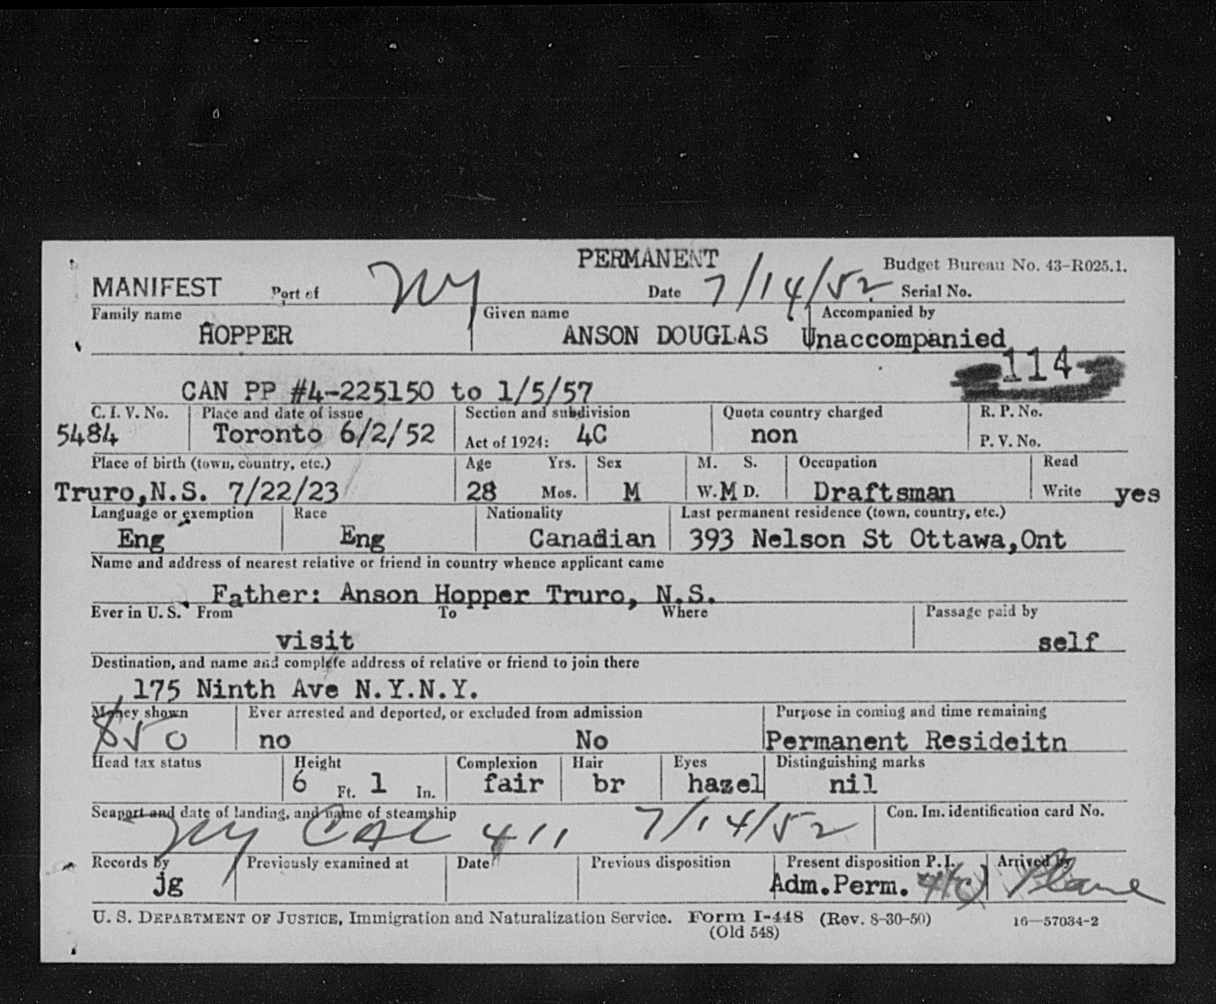 PERMANENT
Budget Bureau No. 43-R025.1.
MANIFEST Port of NY Date 7/14/52 Serial No.
Family name Given name Accompanied by
HOPPER ANSON DOUGLAS Unaccompanied
114
CAN PP #4-225150 to 1/5/57
C. I. V. No. Place and date of issue Section and subdivision Quota country charged R. P. No.
5484 Toronto 6/2/52 Act of 1924: 4C non P. V. No.
Place of birth (town, country, etc.) Age Yrs. Sex M. S. Occupation Read
Truro,N.S. 7/22/23 28 Mos. M W. M D. Draftsman Write yes
Language or exemption Race Nationality Last permanent residence (town, country, etc.)
Eng Eng Canadian 393 Nelson St Ottawa,Ont
Name and address of nearest relative or friend in country whence applicant came
Father: Anson Hopper Truro, N.S.
Ever in U. S. From To Where Passage paid by
visit self
Destination, and name and complete address of relative or friend to join there
175 Ninth Ave N.Y.N.Y.
Money shown Ever arrested and deported, or excluded from admission Purpose in coming and time remaining
no No Permanent Resideitn
Head tax status Height Complexion Hair Eyes Distinguishing marks
6 Ft. 1 In. fair br hazel nil
Seaport and date of landing, and name of steamship Con. Im. identification card No.
NY CAL 411 7/14/52
Records by Previously examined at Date Previous disposition Present disposition P. I. Arrived by
jg Adm.Perm. Plane
U. S. DEPARTMENT OF JUSTICE, Immigration and Naturalization Service. Form I-448 (Rev. 8-30-50) 16—57034-2
(Old 548)